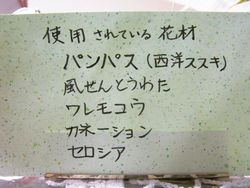 使用されている花材
パンパス(西洋ススキ)
風せんとうわた
ワレモコウ
カネーション
セロシア